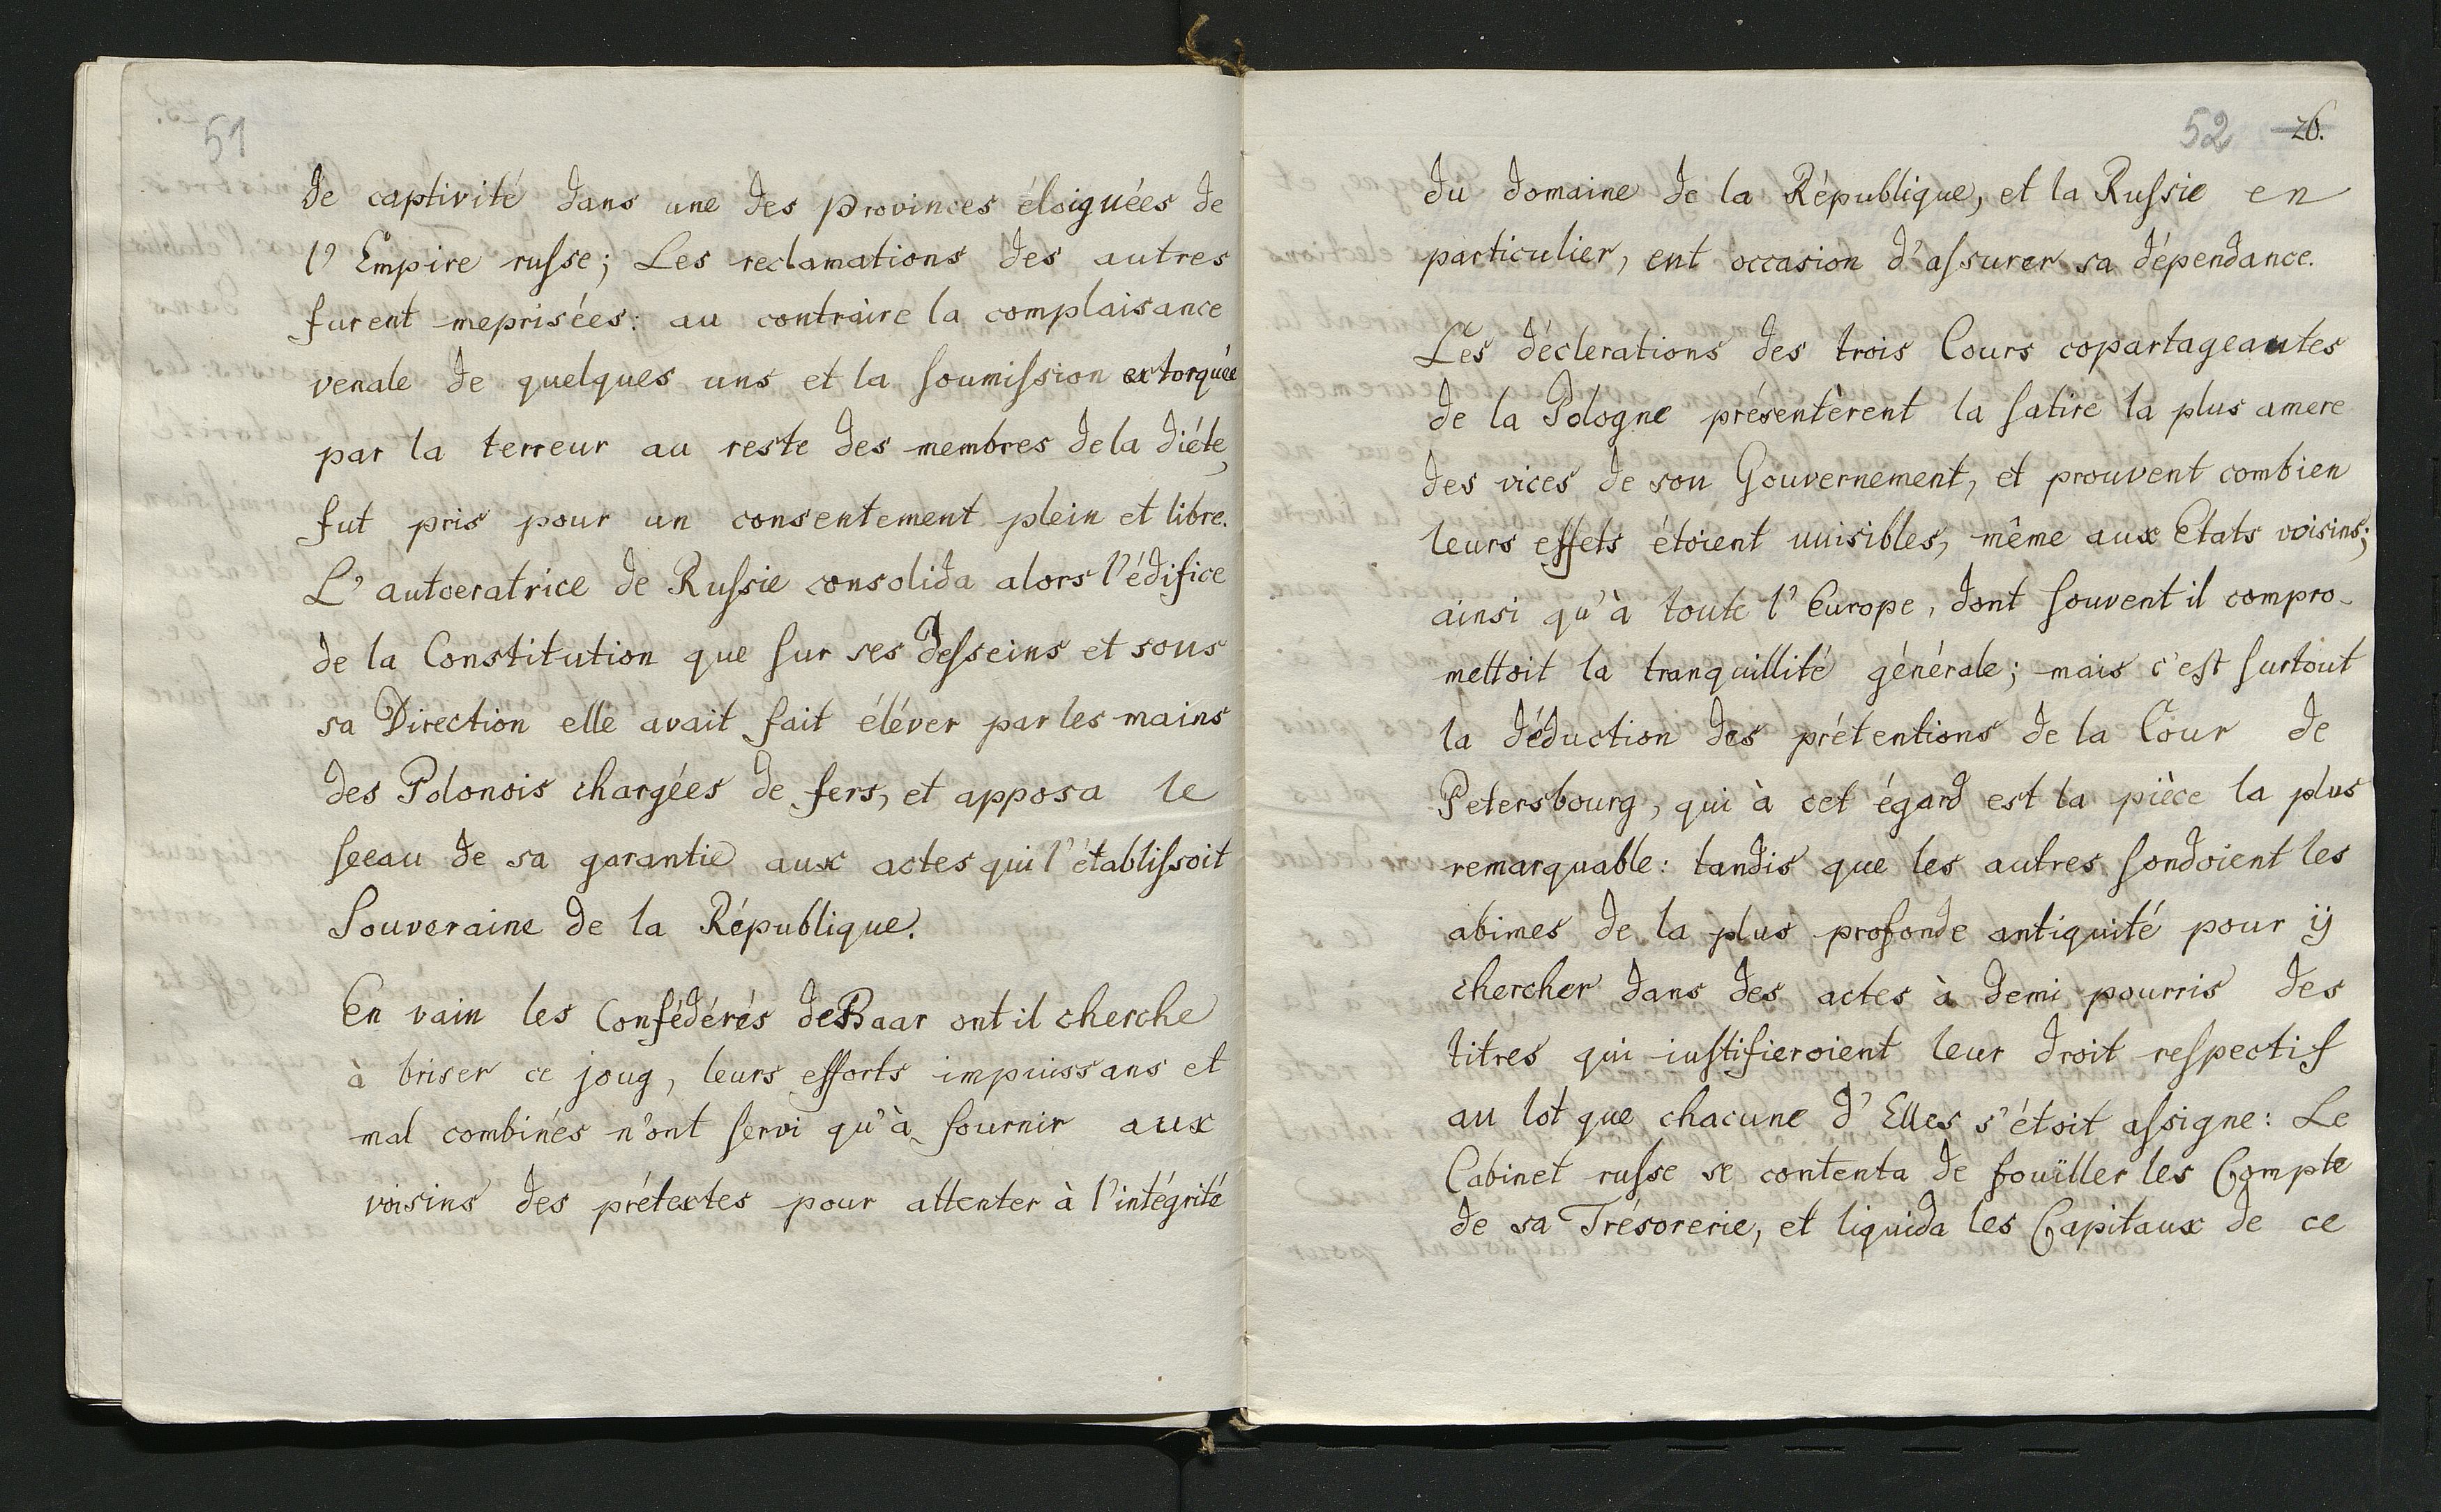 51
de captivité dans une des provinces éloignées de
l' Empire russe; Les reclamations des autres
furent meprisées: au contraire la complaisance
venale de quelques uns et la soumission extorquée
par la terreur au reste des membres de la diéte,
fut pris pour un consentement plein et libre.
L' autocratrice de Russie consolida alors l'édifice
de la Constitution que sur ses desseins et sous
sa Direction elle avait fait éléver par les mains
des Polonois chargées de fers, et apposa le
sceau de sa garantie aux actes qui l'établissoit
Souveraine de la République.
En vain les Confédérés de Baar ont il cherche
à briser ce joug, leurs efforts impuissans et
mal combinés n'ont servi qu'à fournir aux
voisins des prétextes pour attenter à l'intégrité
52 26.
du domaine de la République, et la Russie en
particulier, ent occasion d'assurer sa dépendance.
Les déclerations des trois Cours copartageantes
de la Pologne présentèrent la satire la plus amere
des vices de son Gouvernement, et prouvent combien
leurs effets étoient nuisibles, même aux Etats voisins;
ainsi qu'à toute l' Europe, dont souvent il compro-
mettoit la tranquillité générale; mais c'est surtout
la déduction des prétentions de la Cour de
Petersbourg, qui à cet égard est la pièce la plus
remarquable: tandis que les autres sondoient les
abimes de la plus profonde antiquité pour ÿ
chercher dans des actes à demi pourris des
titres qui iustifieroient leur droit respectif
au lot que chacune d' Elles s'étoit assigne: Le
Cabinet russe se contenta de fouïller les Compte
de sa Trésorerie, et liquida les Capitaux de ce